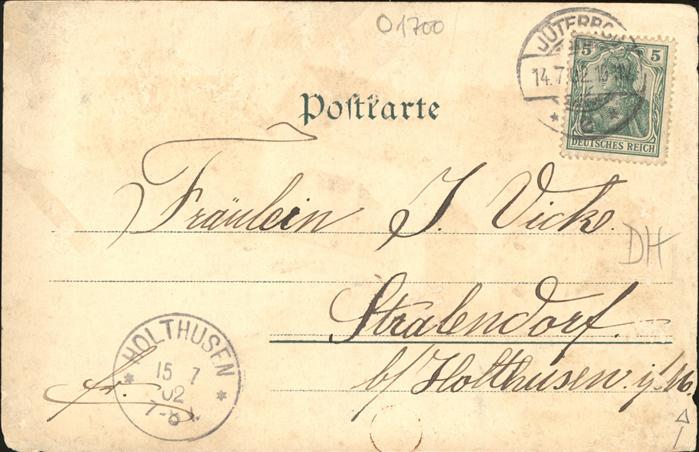 01700
JÜTERBOG
14.7.02
5 5
DEUTSCHES REICH
Postkarte
Fräulein J. Vick.
DH
Stralendorf.
b/Holthusen i/M.
HOLTHUSEN
15 7
02
7-8
fr.